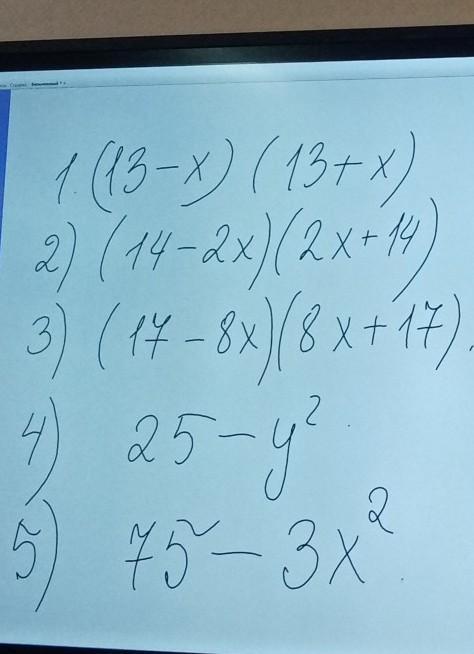 1. (13-x) (13+x)
2) (14-2x)(2x+14)
3) (17-8x)(8x+17).
4) 25-y²
5) 75-3x²